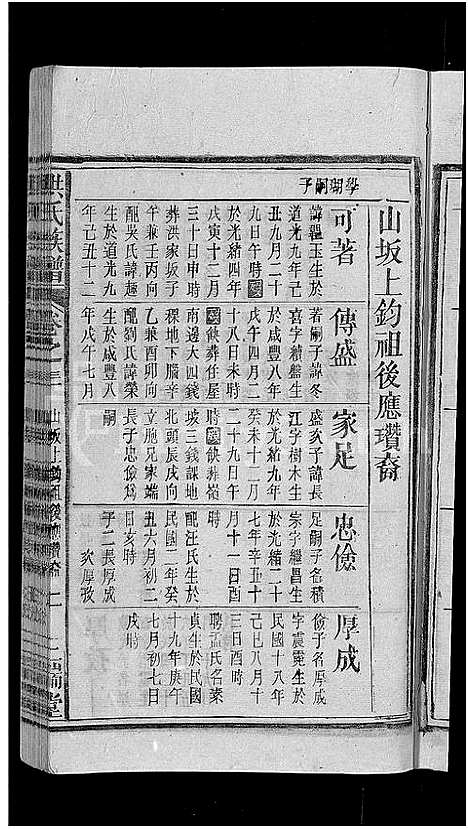 山坂上鈞祖後應瓚裔
學瑚嗣子
可著
諱韞玉生於
道光九年己
丑九月二十
九日午時歿
於光緒四年
戊寅十二月
三十日申時
葬洪家坂子
午兼壬丙向
配吳氏諱
生於道光九
年己丑十二
傳盛
若嗣子諱冬
喜字績盤生
於咸豐八年
戊午四月二
十八日未時
歿葬任屋
南邊大四錢
稞地下廳辛
乙兼酉卯向
配劉氏諱榮
生於咸豐八
年戊午七月
家足
盛次子諱長
江字樹木生
於光緒九年
癸未十二月
二十九日午
時歿葬嶺
坡三錢課地
北頭辰戌向
立胞兄家端
長子忠儉爲
嗣
忠儉
足嗣子名積
宗字繼昌生
於光緒二十
七年辛丑十
月十一日酉
時
配汪氏生於
民國二年癸
丑六月初二
日亥時
子二長厚成
次厚玫
厚成
儉子名厚成
字震霓生於
民國十八年
己巳八月十
三日酉時
聘孟氏名素
貞生於民國
十九年庚午
七月初七日
戌時
洪氏族譜
卷之三
山坂上鈞祖後應瓚裔